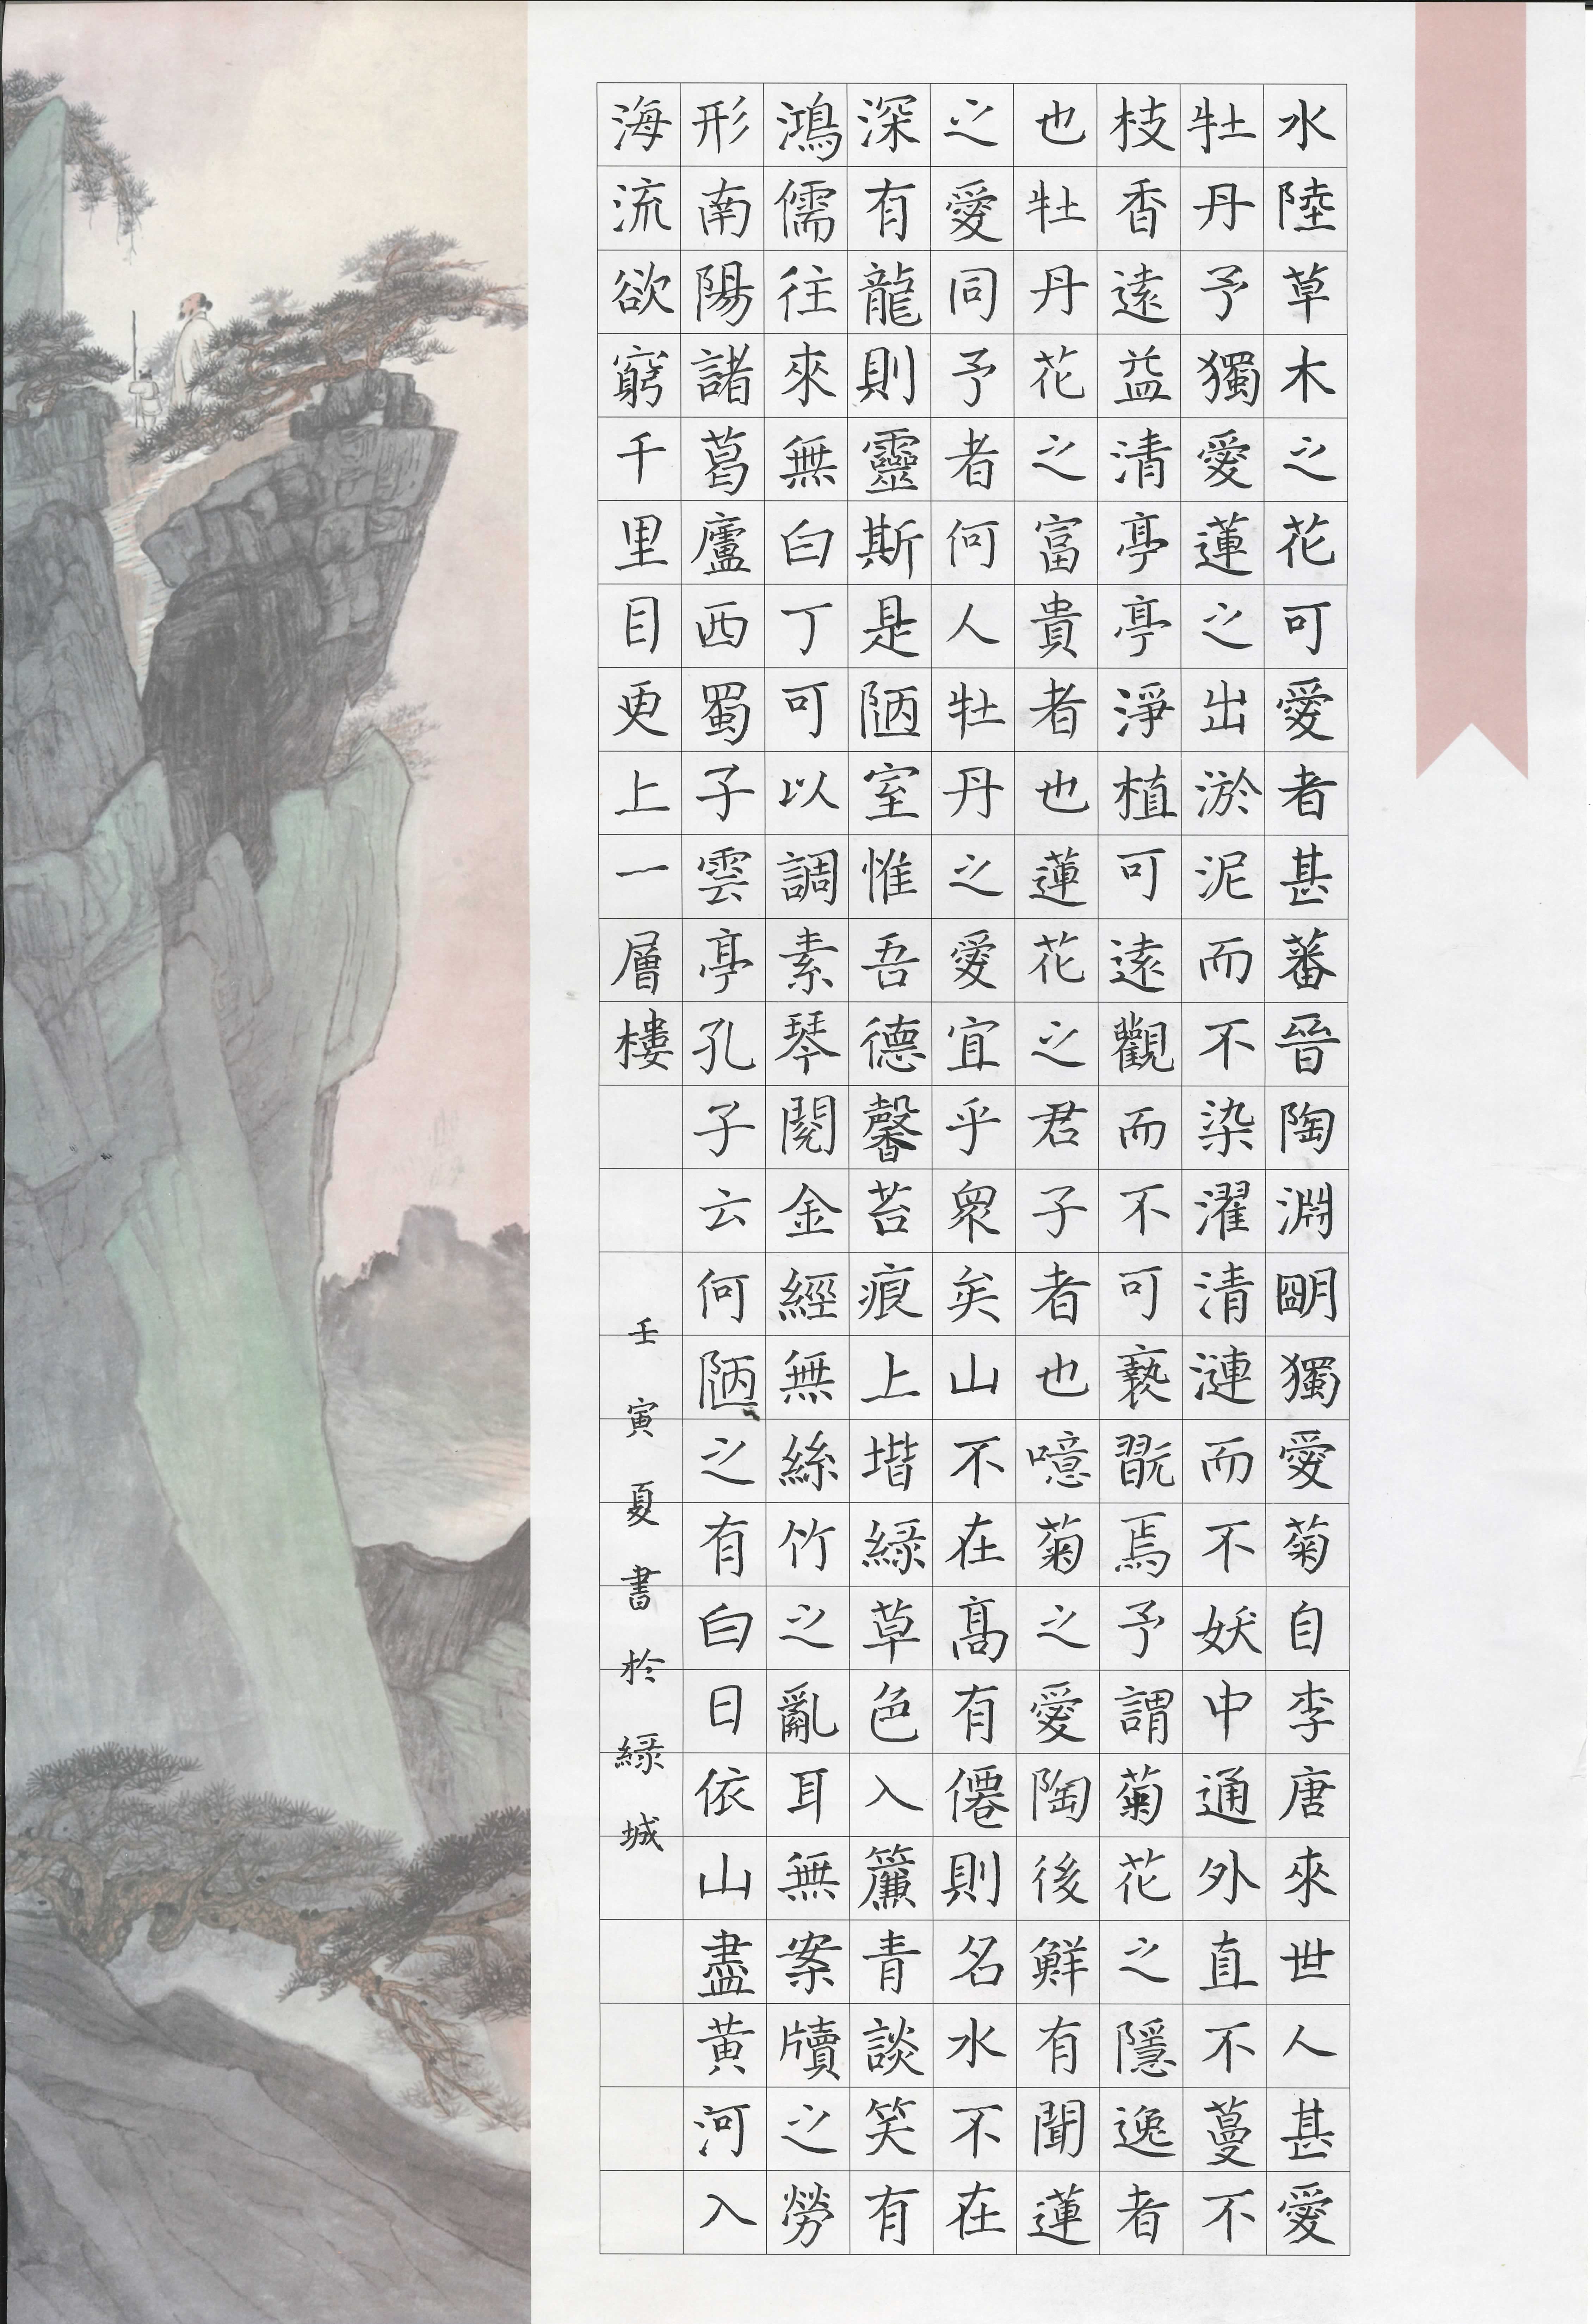 水陸草木之花可愛者甚蕃晉陶淵朙獨愛菊自李唐來世人甚愛
牡丹予獨愛蓮之出淤泥而不染濯清漣而不妖中通外直不蔓不
枝香遠益清亭亭淨植可遠觀而不可褻翫焉予謂菊花之隱逸者
也牡丹花之富貴者也蓮花之君子者也噫菊之愛陶後鮮有聞蓮
之愛同予者何人牡丹之愛宜乎眾矣山不在髙有僊則名水不在
深有龍則靈斯是陋室惟吾德馨苔痕上堦綠草色入簾青談笑有
鴻儒往來無白丁可以調素琴閱金經無絲竹之亂耳無案牘之勞
形南陽諸葛廬西蜀子雲亭孔子云何陋之有白日依山盡黃河入
海流欲窮千里目更上一層樓
壬寅夏書於綠城